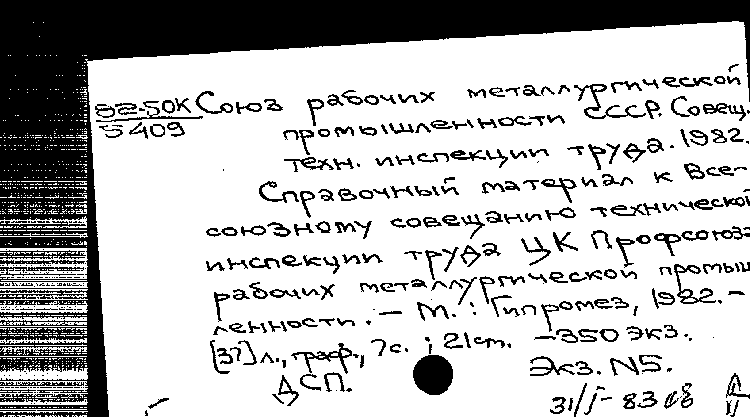 82-50К Союз рабочих металлургической
5409 промышленности СССР. Совещ.
техн. инспекции труда. 1982.
Справочный материал к Все-
союзному совещанию технической
инспекции труда ЦК Профсоюза
рабочих металлургической промыш
ленности. – М.: Гипромез, 1982. –
[37] л., граф., 7с. ; 21см. – 350 экз.
ДСП. Экз. N5.
31/I-83